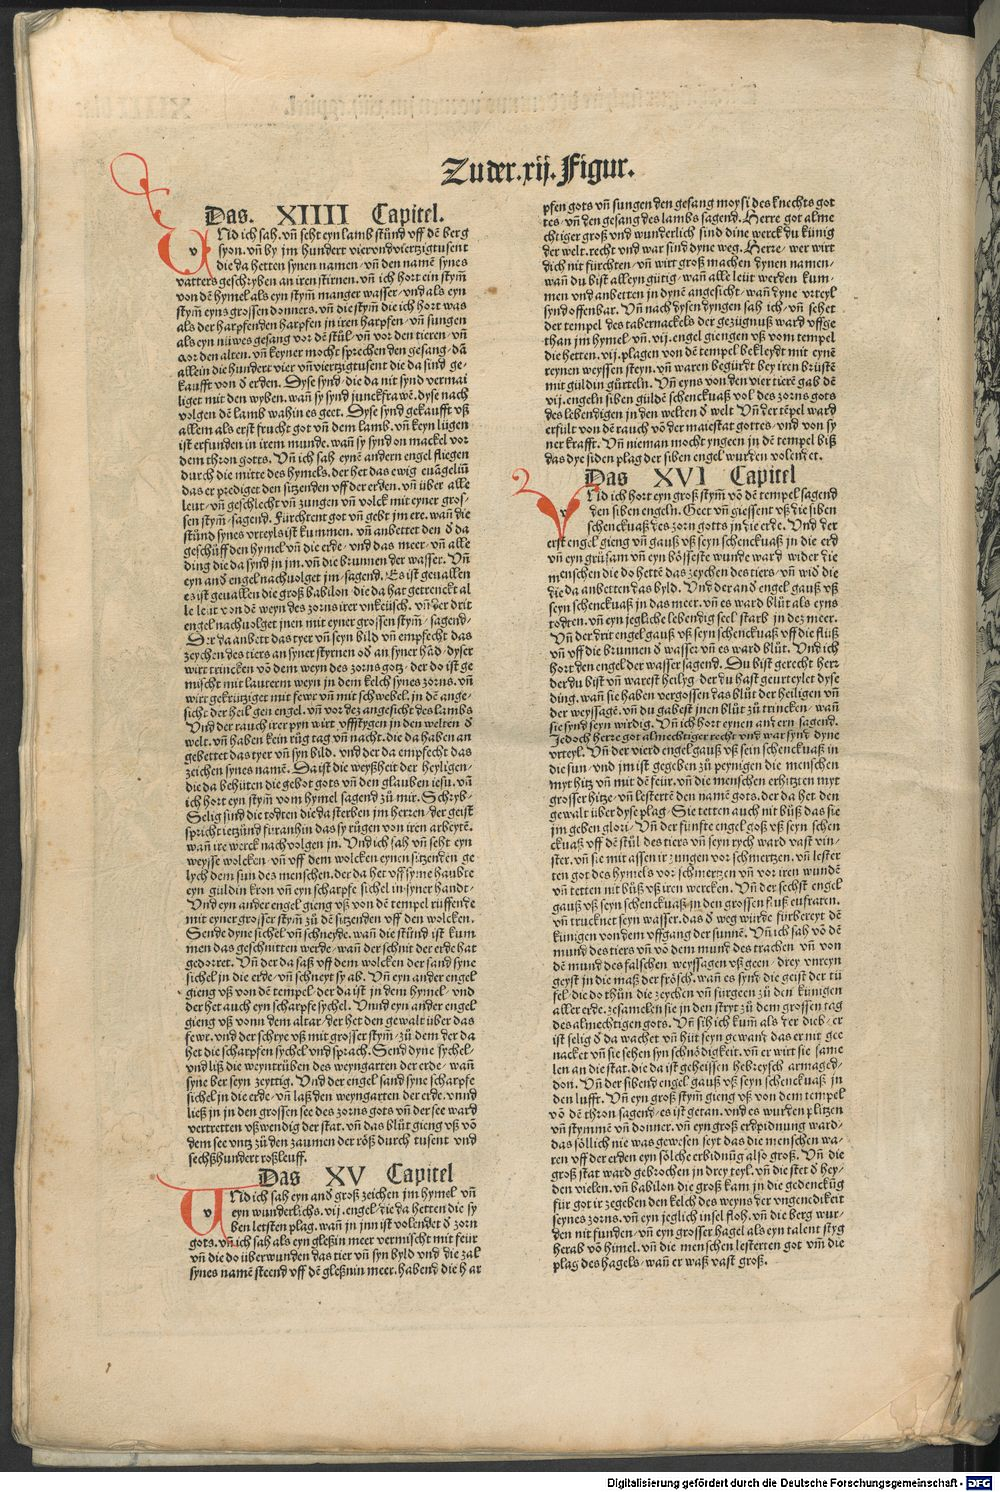 Zu der .xij. Figur.
Das. XIIII Capitel.
Und ich sah. vñ seht eyn lamb stünd vff dē berg
syon. vñ by jm hundert viervndviertzigtusent
die da hetten synen namen / vñ den namē synes
vatters geschryben an iren stirnen. vñ ich hort ein stym̄
von dē hymel als eyn stym̄ manger wasser / vnd als eyn
stym̄ eyns grossen donners. vñ die stym̄ die ich hort was
als der harpfenden harpfen in iren harpfen / vñ sungen
als eyn nüwes gesang vor dē stůl / vñ vor den tieren / vñ
vor den alten. vñ keyner mocht sprechen den gesang / dā
allein die hundert vier vñ viertzigtusent die da sind ge-
kaufft von d̄ erden. Dyse synd / die da nit synd vermai
liget mit den wyben. wañ sy synd junckfrawē. dyse nach
volgen dē lamb wahin es geet. Dyse synd gekaufft vß
allem als erst frucht got vñ dem lamb. vñ keyn lügen
ist erfunden in irem munde. wañ sy synd on mackel vor
dem thron gotts. Vñ ich sah eynē andern engel fliegen
durch die mitte des hymels. der het das ewig euāgeliū
das er prediget den sitzenden vff der erden. vñ über alle
leut / vñ geschlecht vñ zungen vñ volck mit eyner gros-
sen stym̄ / sagend. Fürchtent got vñ gebt jm ere. wañ die
stünd synes vrteyls ist kummen. vñ anbettet den d̄ da
geschüff den hymel vñ die erde / vnd das meer / vñ alle
ding die da synd jn jm. vñ die brunnen der wasser. Vñ
eyn and̄ engel nachvolget jm / sagend. Es ist geuallen
es ist geuallen die groß babilon / die da hat getrenckt al
le leut von dē weyn des zorns irer vnkeüsch. vñ der drit
engel nachvolget jnen mit eyner grossen stym̄ / sagend /
Der da anbett das tyer vñ seyn bild vñ empfecht das
zeychen des tiers an syner styrnen od̄ an syner hād / dyser
wirt trincken vō dem weyn des zorns gotz / der do ist ge
mischt mit lauterm weyn jn dem kelch synes zorns. vñ
wirt gekrütziget mit fewr vñ mit schwebel. jn dē ange-
sicht der heiligen engel. vñ vor dez angesicht des lambs
Vnd der rauch irer pyn wirt vffstygen in den welten d̄
welt. vñ haben kein rüg tag vñ nacht. die da haben an
gebettet das tyer vñ syn bild. vnd der da empfecht das
zeichen synes namē. Da ist die weyßheit der heyligen /
die da behüten die gebot gots vñ den glauben iesu. vñ
ich hort eyn stym̄ vom hymel sagend zü mir. Schryb /
Selig sind die todten die da sterben jm herren / der geist
spricht ietzünd füranhin das sy rügen von iren arbeytē.
wañ ire werck nachvolgen jn. Vnd ich sah vñ seht eyn
weysse wolcken / vñ vff dem wolcken eynen sitzenden ge
lych dem sun des menschen. der da het vff syme haubte
eyn güldin kron vñ eyn scharpfe sichel in syner handt /
Vnd eyn ander engel gieng vß von dē tempel rüffende
mit eyner grosser stym̄ zü dē sitzenden vff den wolcken.
Sende dyne sichel vñ schneyde. wañ die stünd ist kum
men das geschnitten werde / wañ der schnit der erde hat
gedorret. Vñ der da saß vff dem wolcken der sand syne
sichel jn die erde / vñ schneyt sy ab. Vñ eyn ander engel
gieng vß von dē tempel / der da ist jn dem hymel / vnd
der het auch eyn scharpfe sychel. Vnnd eyn ander engel
gieng vß vonn dem altar / der het den gewalt über das
fewr. vnd der schrye vß mit grosser stym̄ / zü dem der da
het die scharpfen sychel vnd sprach. Send dyne sychel /
vnd liß die weyntrüben des weyngarten der erde / wañ
syne ber seyn zeyttig. Vnd der engel sand syne scharpfe
sichel jn die erde / vñ laß den weyngarten der erde. vnnd
ließ jn jn den grossen see des zorns gots vñ der see ward
vertretten vßwendig der stat. vñ das blüt gieng vß vō
dem see vntz zü den zaumen der röß durch tusent vnd
sechßhundert roßleuff.
Das XV Capitel
Und ich sah eyn and̄ groß zeichen jm hymel vñ
eyn wunderlichs. vij. engel / die da hetten die sy
ben letsten plag. wañ jn jnn ist volendet d̄ zorn
gots. vñ ich sah als eyn gleßin meer vermischt mit feür
vñ die do überwunden das tier vñ syn byld vnd die zal
synes namē steend vff dē gleßnin meer. habend die har
pfen gots vñ sungen den gesang moysi des knechts got
tes / vñ den gesang des lambs sagend. Herre got alme
chtiger groß vnd wunderlich sind dine werck du künig
der welt. recht vnd war sind dyne weg. Herre / wer wirt
dich nit fürchten / vñ wirt groß machen dynen namen /
wañ du bist alleyn gütig / wañ alle leüt werden kum-
men vnd anbetten jn dynē angesicht / wañ dyne vrteyl
synd offenbar. Vñ nach dysen dyngen sah ich / vñ sehet
der tempel des tabernackels der gezügnuß ward vffge
than jm hymel / vñ. vij. engel giengen vß vom tempel
die hetten. vij. plagen von dē tempel bekleydt mit eynē
reynen weyssen steyn. vñ waren begürdt bey iren brüstē
mit güldin gürteln. Vñ eyns von den vier tierē gab dē
vij. engeln siben güldē schenckuaß vol des zorns gots
des lebendigen jn den welten d̄ welt Vñ der tēpel ward
erfült von dē rauch vō der maiestat gottes / vnd von sy
ner krafft. Vñ nieman mocht yngeen jn dē tempel biß
das dye siben plag der siben engel wurden volendet.
Das XVI Capitel
Und ich hort eyn groß stym̄ vō dē tempel sagend
den siben engeln. Geet vñ giessent vß die siben
schenckuaß des zorn gotts jn die erde. Vnd der
erst engel gieng vñ gauß vß seyn schenckuaß jn die erd
vñ eyn grüsam vñ eyn bösseste wunde ward wider die
menschen die do hettē das zeychen des tiers / vñ wid̄ die
die da anbetten das byld. Vnd der and̄ engel gauß vß
seyn schenckuaß jn das meer. vñ es ward blüt als eyns
todten. vñ eyn jegliche lebendig seel starb jn dez meer.
Vñ der drit engel gauß vß seyn schenckuaß vff die flüß
vñ vff die brunnen d̄ wasser vñ es ward blüt. Vnd ich
hort den engel der wasser sagend. Du bist gerecht herr
der du bist vñ warest heilyg / der du hast geurteylet dyse
ding. wañ sie haben vergossen das blüt der heiligen vñ
der weyssagē. vñ du gabest jnen blüt zü trincken / wañ
sie synd seyn wirdig. Vñ ich hort eynen andern sagend.
Jedoch herre got almechtiger recht vnd war synd dyne
vrteyl. Vñ der vierd engel gauß vß sein schenckuaß in
die sun / vnd jm ist gegeben zü peynigen die menschen
myt hitz vñ mit dē feür. vñ die menschen erhitzten myt
grosser hitze / vñ lestertē den namē gots. der da het den
gewalt über dyse plag / Sie tetten auch nit büß das sie
jm geben glori / Vñ der fünfte engel goß vß seyn schen
ckuaß vff dē stül des tiers vñ seyn rych ward vast vin-
ster. vñ sie mit assen ir zungen vor schmertzen. vñ lester
ten got des hymels vor schmertzen vñ vor iren wundē
vñ tetten nit büß vß iren wercken. Vñ der sechst engel
gauß vß seyn schenckuaß jn den grossen fluß eufraten.
vñ trucknet seyn wasser. das d̄ weg würde fürbereyt dē
künigen von dem vffgang der sunnē. Vñ ich sah vō dē
mund des tiers vñ vō dem mund des trachen vñ von
dē mund des falschen weyssagen vß geen / drey vnreyn
geyst jn die maß der frösch. wañ es synd die geist der tü
fel / die do thün die zeychen vñ fürgeen zü den künigen
aller erde. ze samelen sie jn den stryt zü dem grossen tag
des almechtigen gots. Vñ sih ich kum̄ als der dieb / er
ist selig d̄ da wachet vñ hüt seyn gewant das er nit gee
nacket vñ sie sehen syn schnödigkeit. vñ er wirt sie same
len an die stat. die da ist geheissen hebreysch armaged-
don. Vñ der sibend engel gauß vß seyn schenckuaß jn
den lufft. Vñ eyn groß stym̄ gieng vß von dem tempel
vō dē thron sagend / es ist getan. vnd es wurden plitzen
vñ stymmē vñ donner. vñ eyn groß erdpidnung ward /
das söllich nie was gewesen seyt das die menschen wa-
ren vff der erden eyn sölche erbidnūg also groß. Vñ die
groß stat ward gebrochen jn drey teyl. vñ die stet d̄ hey-
den vielen. vñ babilon die groß kam jn die gedencküg
für got ir zegeben den kelch des weyns der vngenedikeit
seynes zorns. vñ eyn jeglich insel floh. vñ die berg wur-
den nit funden / vñ eyn grosser hagel als eyn talent styg
herab vō himel. vñ die menschen lesterten got vm̄ die
plag des hagels / wañ er waß vast groß.
Digitalisierung gefördert durch die Deutsche Forschungsgemeinschaft - DFG